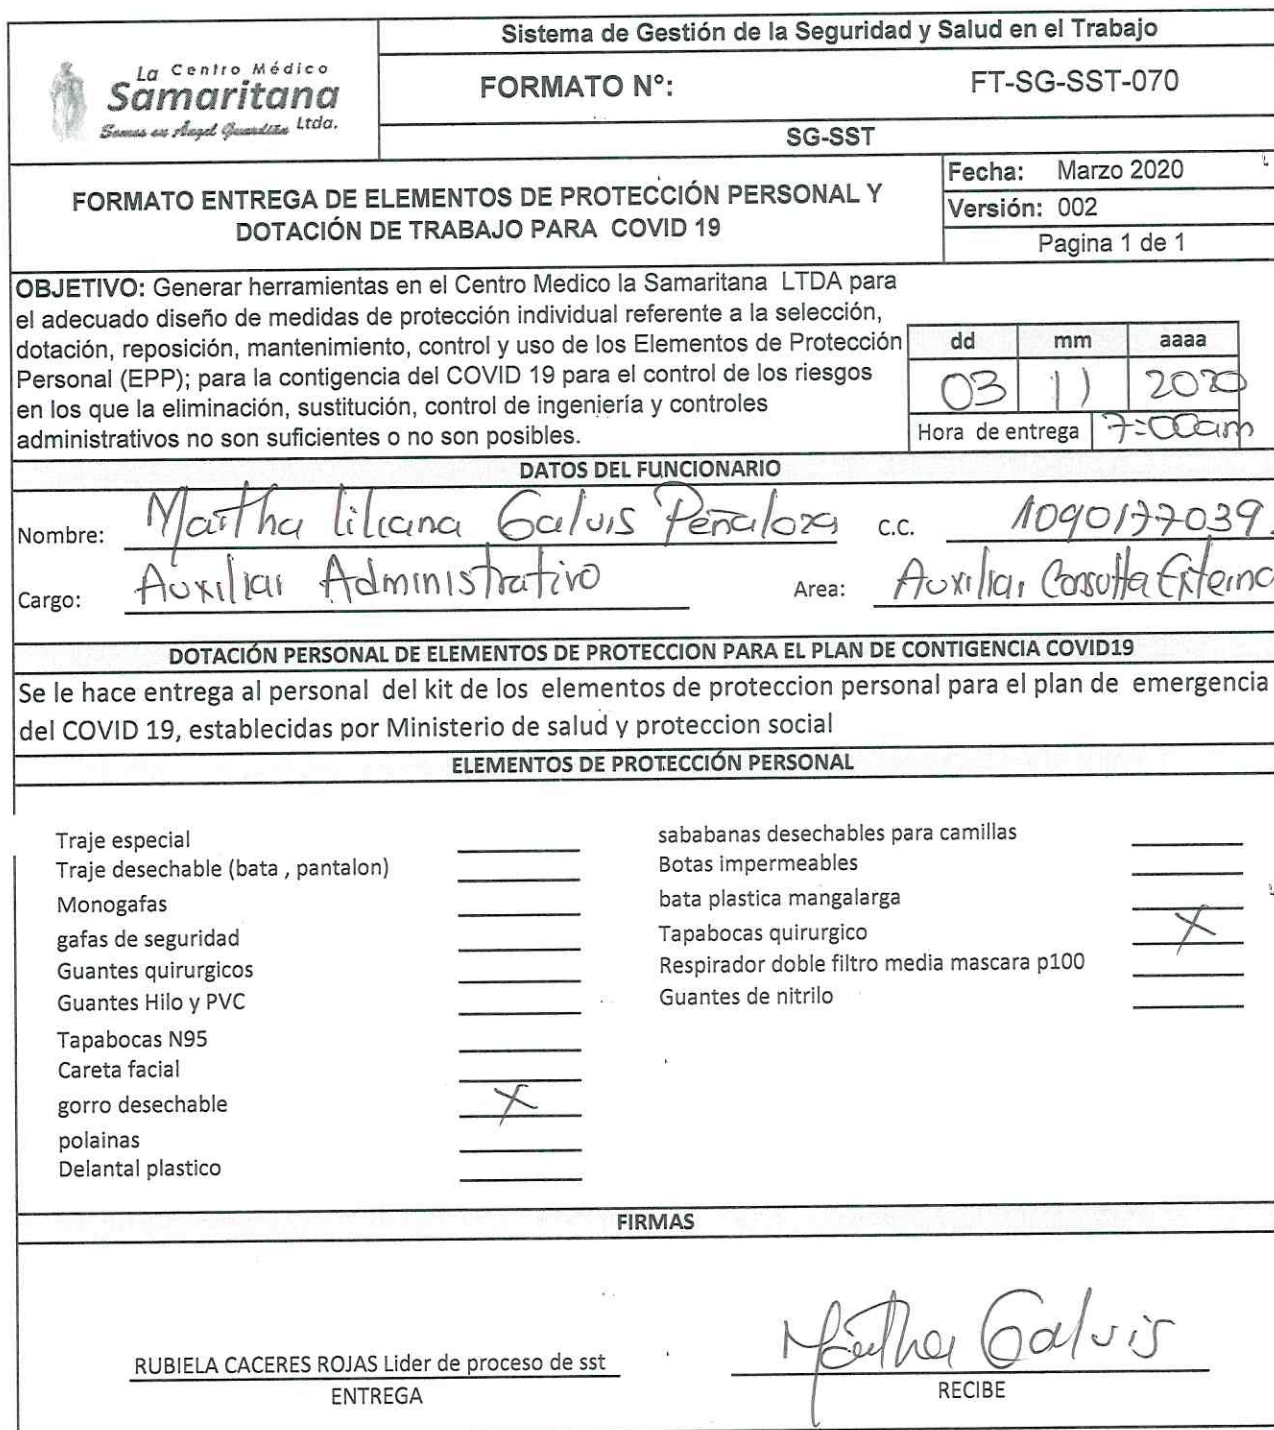 La Centro Médico
Samaritana
Somos su Ángel Guardián Ltda.
Sistema de Gestión de la Seguridad y Salud en el Trabajo
FORMATO N°: FT-SG-SST-070
SG-SST
FORMATO ENTREGA DE ELEMENTOS DE PROTECCIÓN PERSONAL Y
DOTACIÓN DE TRABAJO PARA COVID 19
Fecha: Marzo 2020
Versión: 002
Pagina 1 de 1
OBJETIVO: Generar herramientas en el Centro Medico la Samaritana LTDA para
el adecuado diseño de medidas de protección individual referente a la selección,
dotación, reposición, mantenimiento, control y uso de los Elementos de Protección
Personal (EPP); para la contigencia del COVID 19 para el control de los riesgos
en los que la eliminación, sustitución, control de ingeniería y controles
administrativos no son suficientes o no son posibles.
dd mm aaaa
03 11 2020
Hora de entrega 7:00am
DATOS DEL FUNCIONARIO
Nombre: Martha liliana Galvis Peñaloza c.c. 1090177039.
Cargo: Auxiliar Administrativo Area: Auxiliar Consulta Externa
DOTACIÓN PERSONAL DE ELEMENTOS DE PROTECCION PARA EL PLAN DE CONTIGENCIA COVID19
Se le hace entrega al personal del kit de los elementos de proteccion personal para el plan de emergencia
del COVID 19, establecidas por Ministerio de salud y proteccion social
ELEMENTOS DE PROTECCIÓN PERSONAL
Traje especial
Traje desechable (bata , pantalon)
Monogafas
gafas de seguridad
Guantes quirurgicos
Guantes Hilo y PVC
Tapabocas N95
Careta facial
gorro desechable X
polainas
Delantal plastico
sababanas desechables para camillas
Botas impermeables
bata plastica mangalarga
Tapabocas quirurgico X
Respirador doble filtro media mascara p100
Guantes de nitrilo
FIRMAS
RUBIELA CACERES ROJAS Lider de proceso de sst
ENTREGA
Martha Galvis
RECIBE